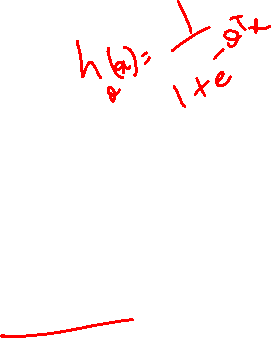 h_θ(x) = 1 / (1 + e^(-θ^T x))